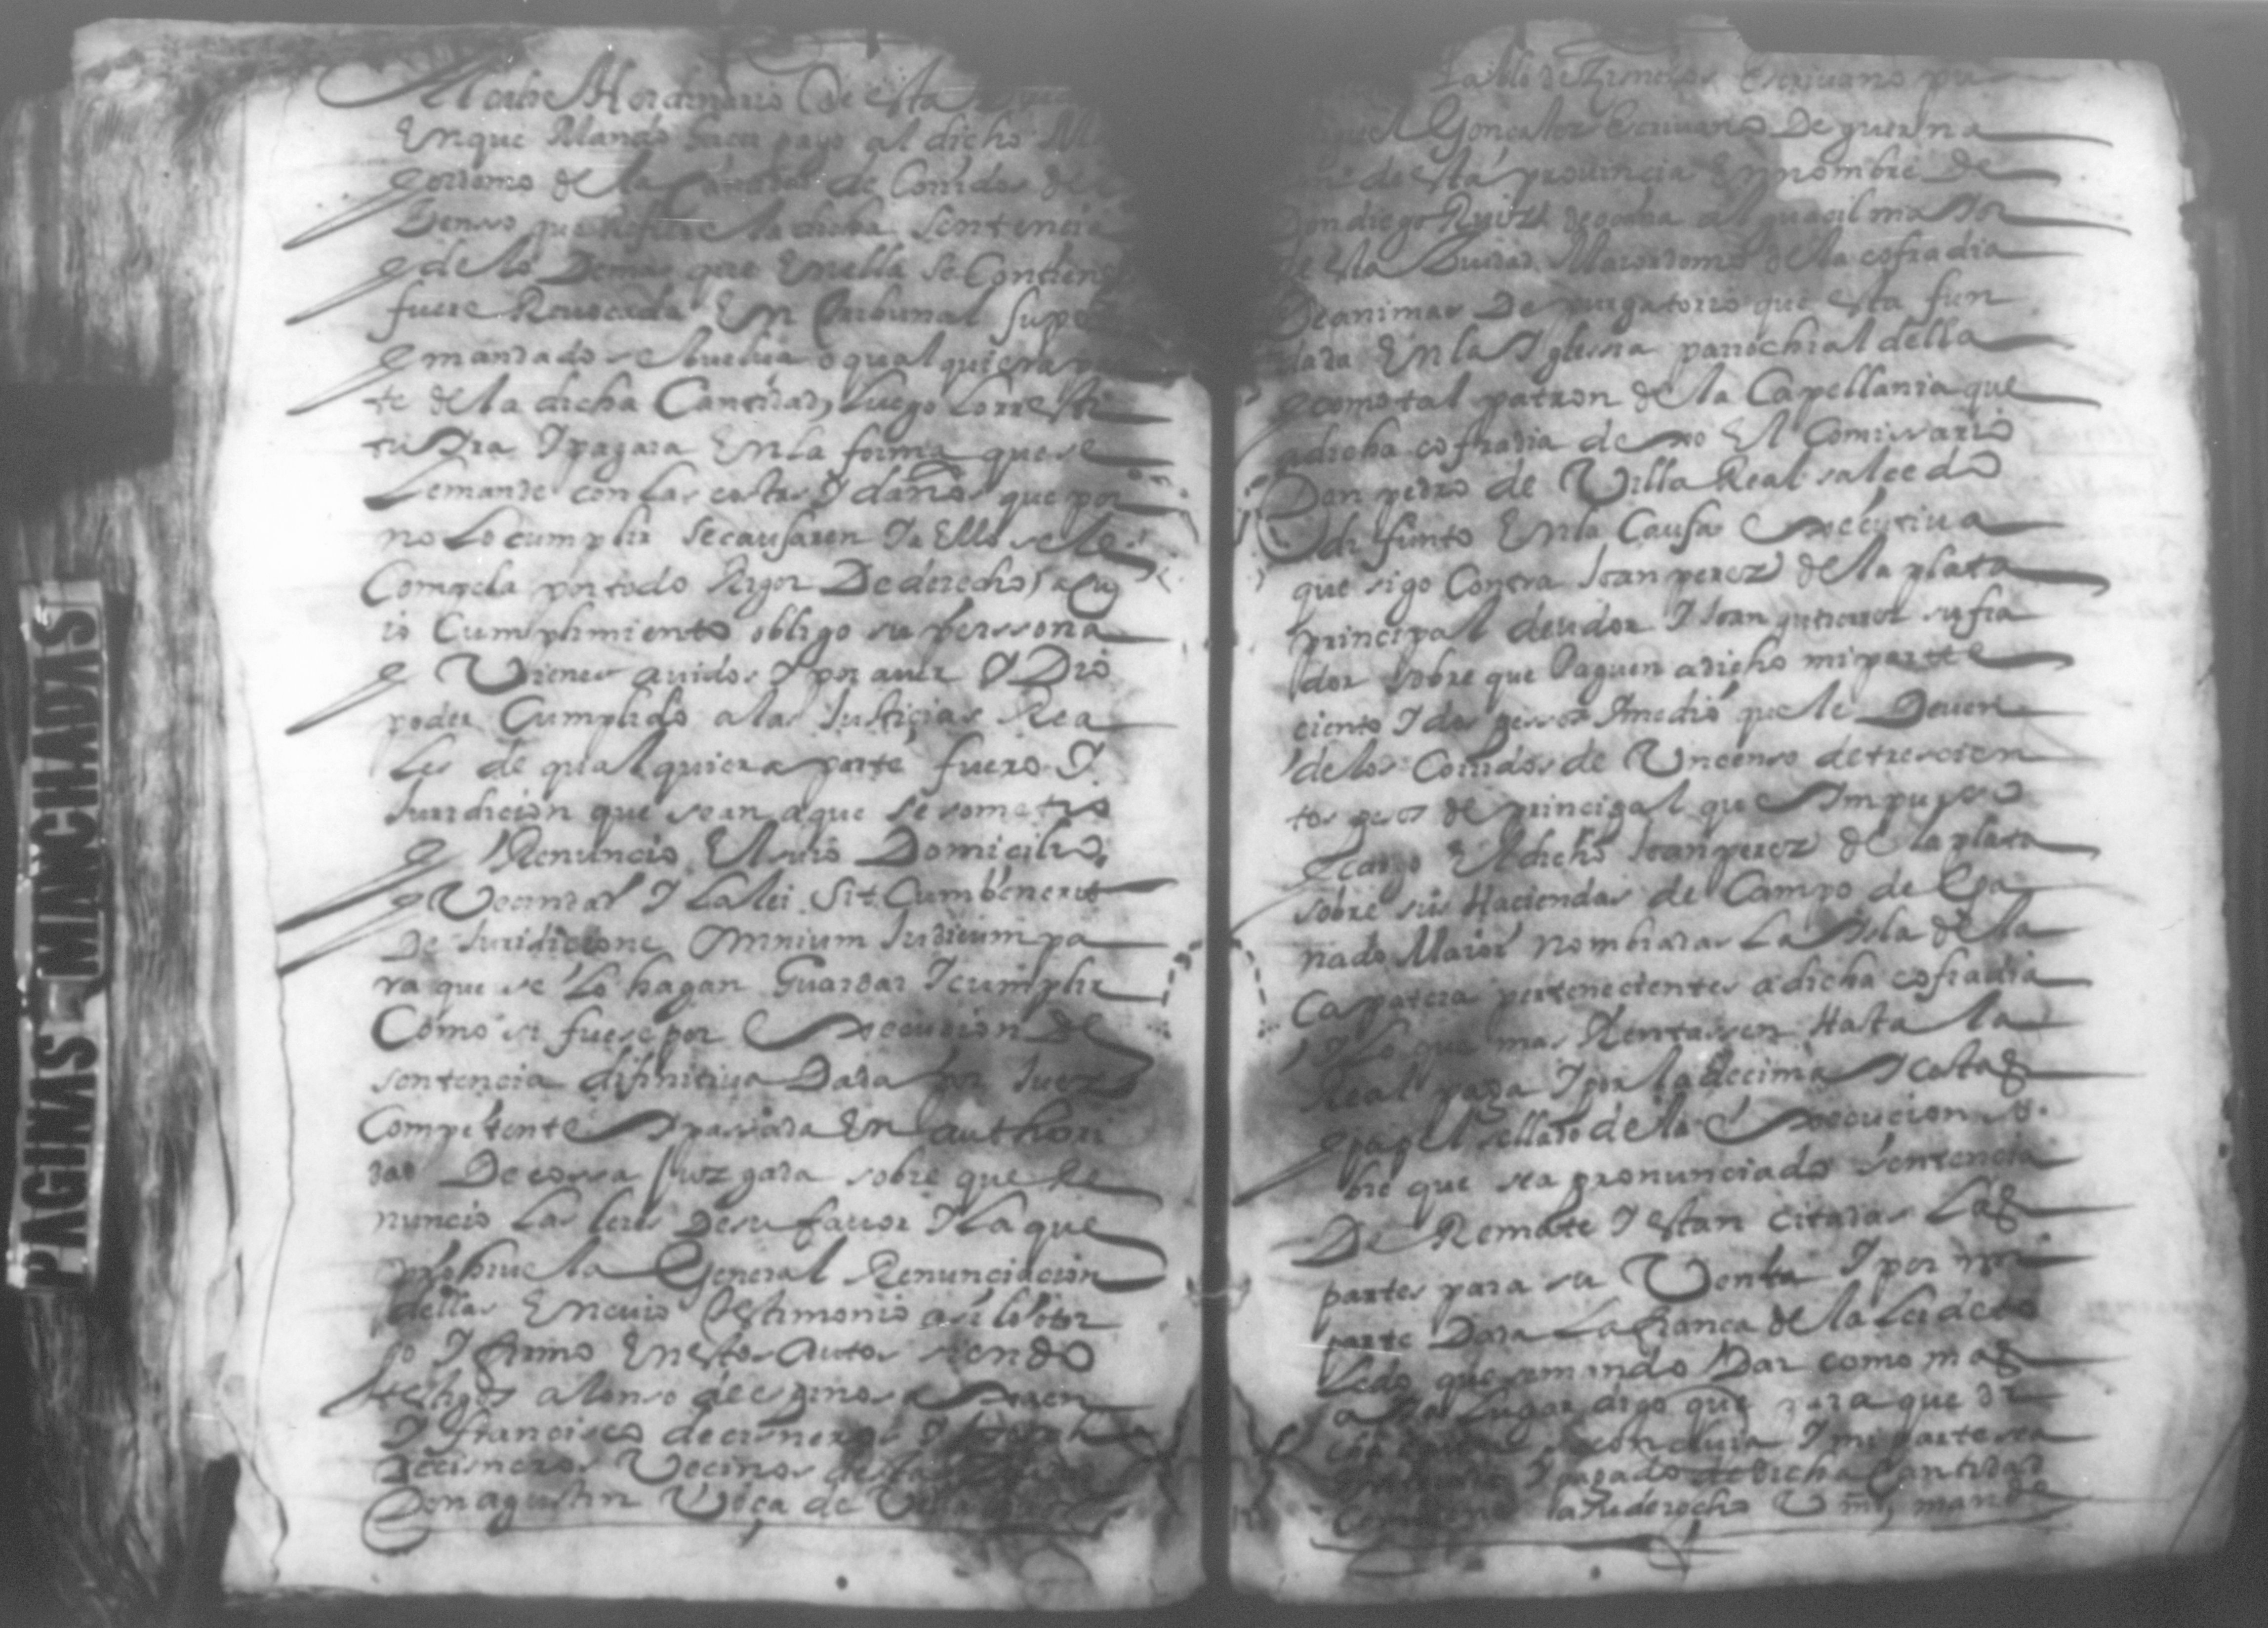 Alcalde Hordinario De esta
En que Mando hacer pago al dicho
eordomo de la Cantidad de Corridos del
Zenso que Refiere la dicha Sentencia
e de lo Demas que En ella Se Contiene
fuere Reuocada En tribunal super
e mandado se buelua o qual quiera par
te de la dicha Cantidad luego lo rresti
tuira I pagara En la forma que se
le mande con las costas I daños que por
no lo cumplir se causaren I a Ello se le
Compela por todo Rigor De derecho, a cu
io Cumplimiento obligo su perssona
e Vienes auidos I por auer I Dio
poder Cumplido a las Justicias Rea
les de qual quiera parte fuero I
Juridicion que sean a que se sometio
e Renuncio El suio Domicilio,
e Vecindad I la lei Sit Cumbenerit
De Juridicione Omnium Judicum pa
ra que se lo hagan Guardar I cumplir
Como si fuese por Execucion de
sentencia difinitiua Dada por Juez
Competente I passada En authori
dad De cossa Juzgada sobre que Re
nuncio las leies De su fauor I la que
prohiue la General Renunciacion
dellas En cuio testimonio asi lo otor
go I firmo En estos Autos siendo
testigos alonso de espinosa
I francisco de cisneros I
de cisneros Vecinos desta
Don agustin Veça de Villa
Escriuano
Gonçales Escriuano De guerra
de esta prouincia En nombre De
Don diego Ruiz alguacil maior
de esta Ziudad Maiordomo de la cofradia
De animas De purgatorio que esta fun
dada En la Iglessia parrochial della
e como tal patron de la Capellania que
a dicha cofradia dexo El Comissario
Don pedro de Villa Real salcedo
difunto En la Causa Executiua
que sigo Contra Joan perez de la plata
principal deudor I Joan gutierrez su fia
dor sobre que Paguen a dicho mi parte
ciento I dos pessos I medio que le Deuen
de los Corridos de Un censo de trescien
tos pesos de principal que Impusso
e cargo El dicho Joan perez de la plata
sobre sus Haciendas de Campo de Ga
nado Maior nombradas La Isla de la
Capatera pertenecientes a dicha cofradia
I lo que mas Rentassen Hasta la
Real paga I por la decima I costas
e papel sellado de la Execucion so
bre que sea pronunciado sentencia
De Remate I estan citadas las
partes para su Venta I por mi
parte Dada La fiança de la Lei de to
ledo que se mando Dar como mas
aia Lugar digo que para que di
cha se concluia I mi parte sea
I pagado de dicha Cantidad
Combiene a su derecho Vm, mande
PAGINAS MANCHADAS